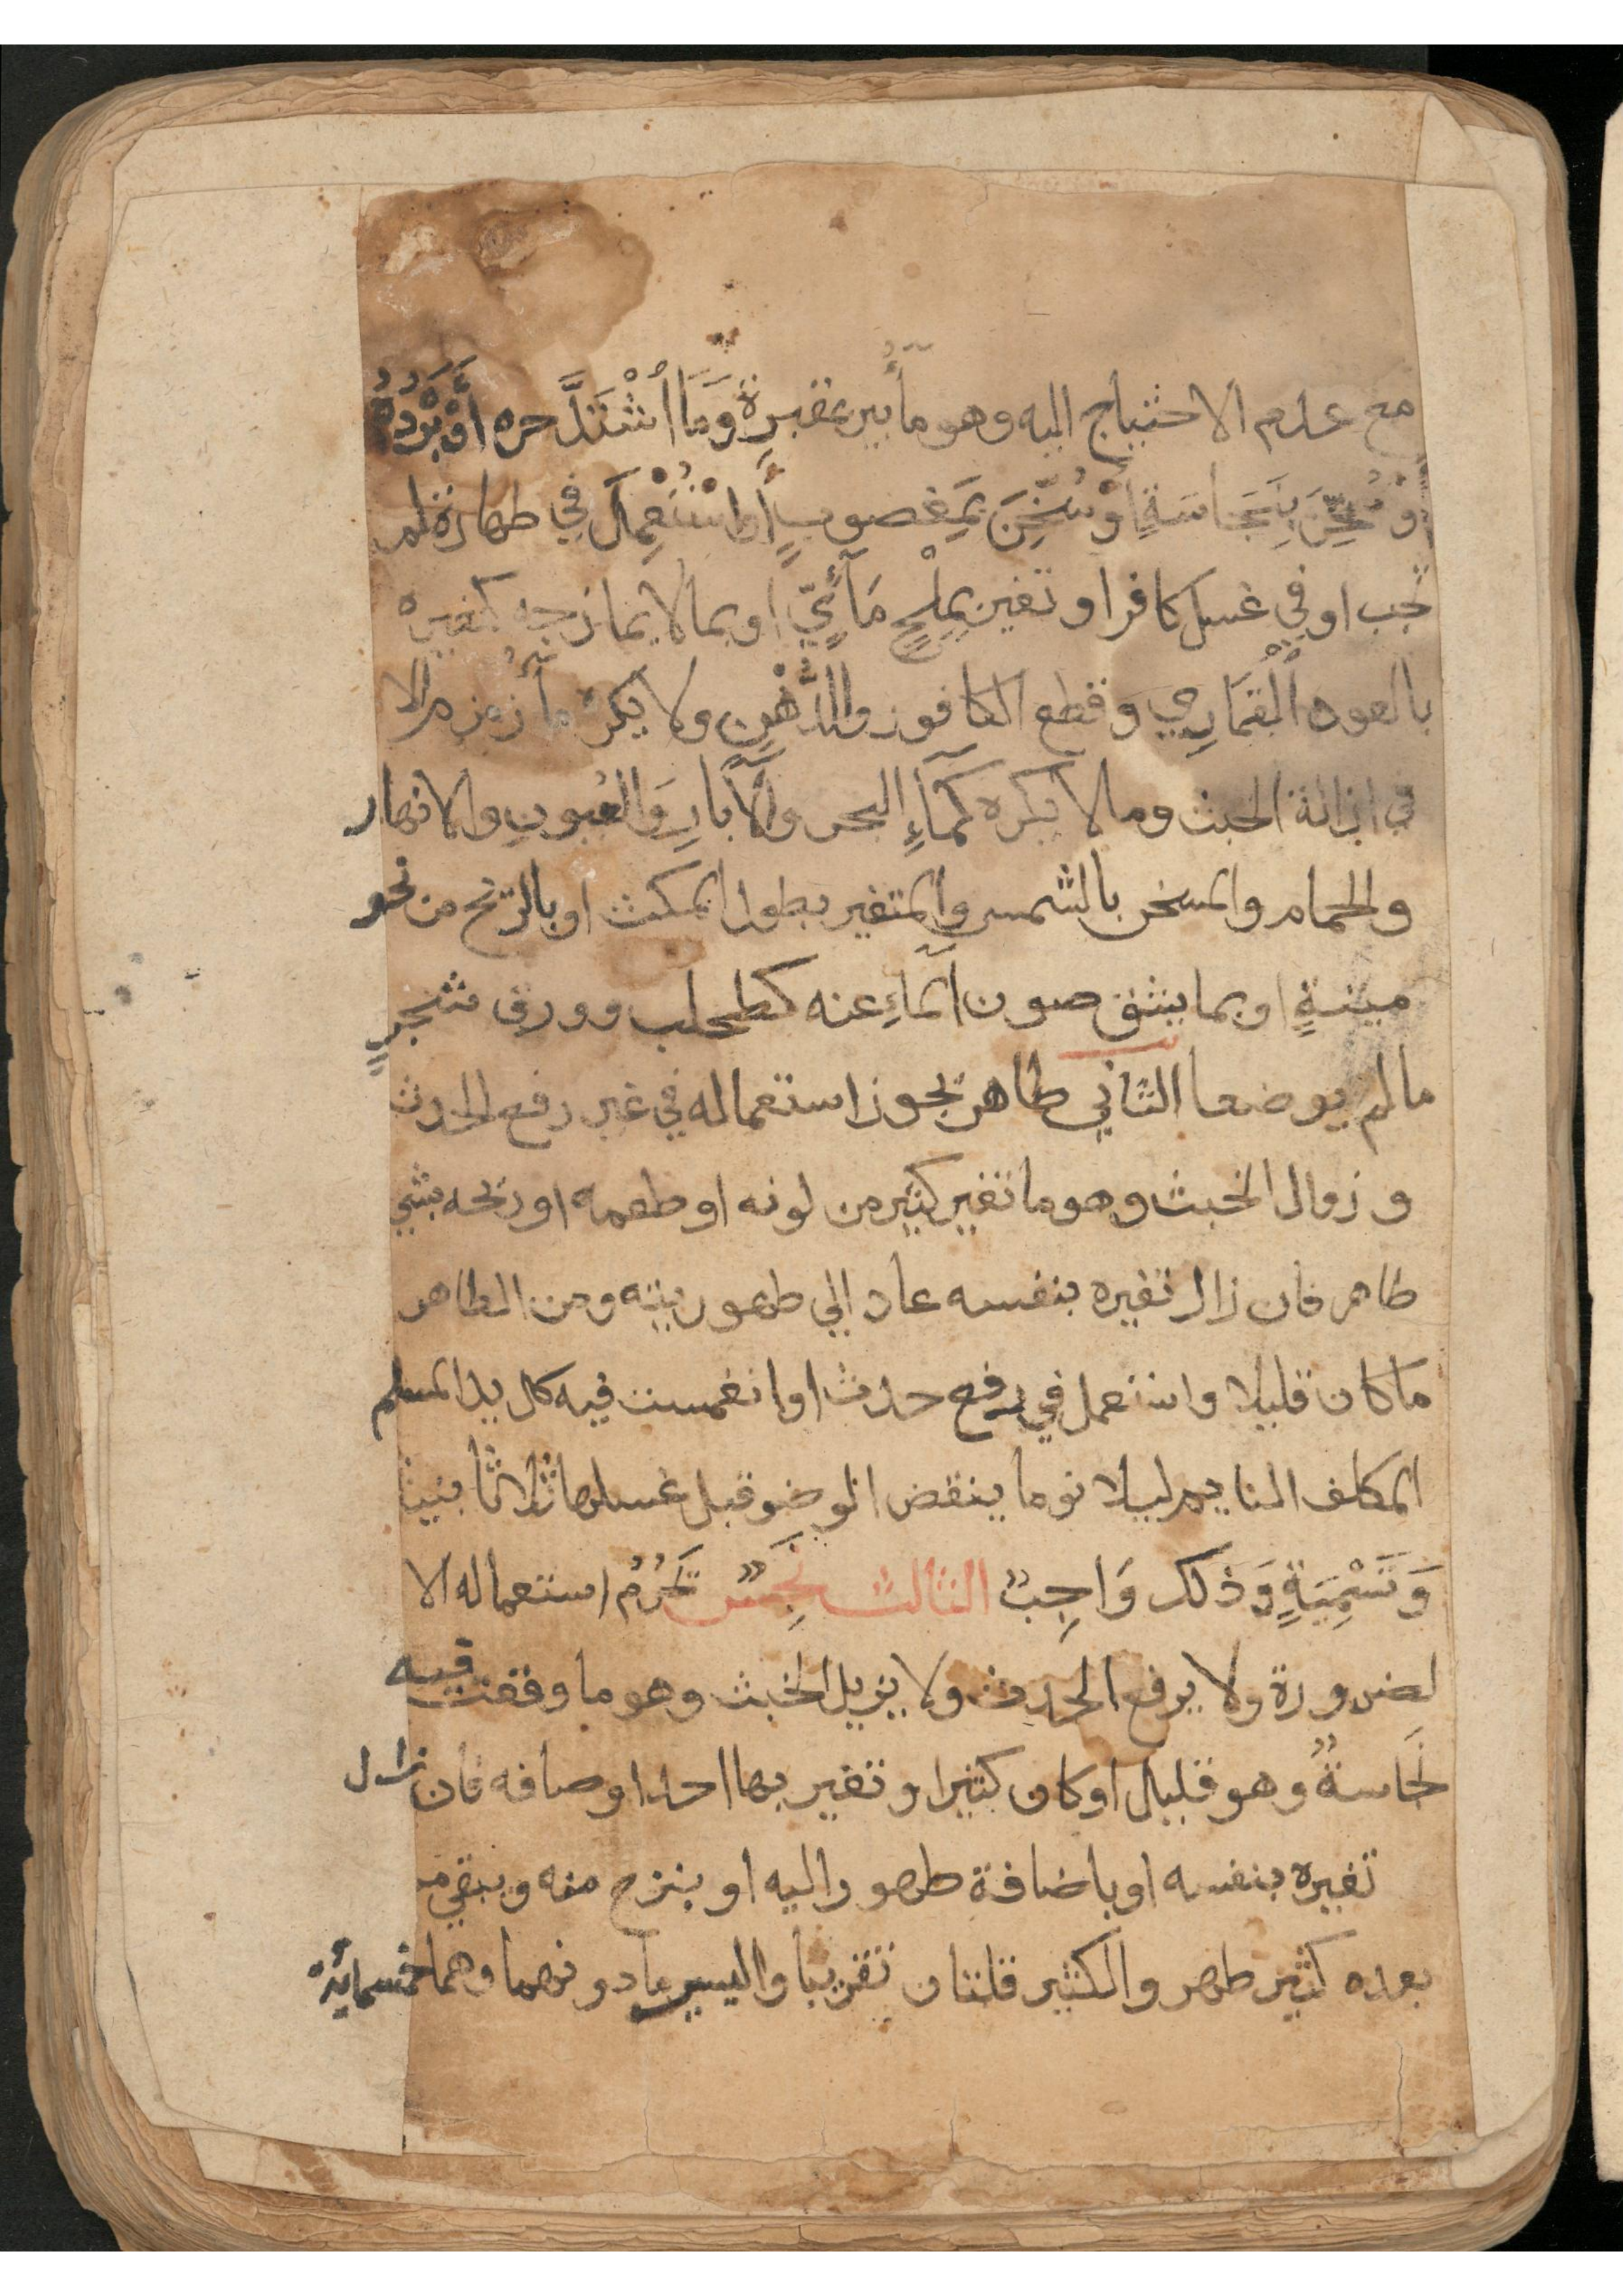 مع عدم الاحتياج اليه وهو مآبير بمقبرة وَمَا أشْتَدَّ حره أَوْبَرْدُهُ
أوْ سُخِّنَ بِنَجَاسَةٍ أوْ سُخِّنَ بِمَغصوبٍ أواسْتُعمِلَ في طهارة لم
تجب او في غسل كافر او تغير بِمِلْحٍ مَآئيٍّ او بما لا يمازجه كتغيره
بالعود الْقُمَارِي وقطع الكافور والدُّهْنِ ولا يكرهُ مآءُ زمزم الا
في ازالة الخبث وما لا يكره كَمَآءِ البحر والآبارِ وَالعُيونِ والانهار
والحمام والمسخن بالشمس والمتغير بطول المكث او بالريح من نحو
ميتةٍ او بما يشق صون المآءِ عنه كطحلب وورق شجرٍ
مالم يوضعا الثاني طاهر يجوز استعماله في غير رفع الحدث
وزوال الخبث وهو ما تغير كثير من لونه او طعمه او ريحه بشي
طاهر فان زال تغيره بنفسه عاد الي طهوريته ومن الطاهر
ماكان قليلا واستعمل في رفع حدث او انغمست فيه كل يد المسلم
المكلف النايم ليلا نوما ينقض الوضو قبل غسلها ثلاثا بنية
وَتَسْمِيَةٍ وَذلك وَاجِبٌ الثالث نجِسٌ يَحْرُمُ استعماله الا
لضرورة ولا يرفع الحدث ولا يزيل الخبث وهو ما وقعت فيه
نَجاسةٌ وهو قليل او كان كثيرا وتغير بها احد اوصافه فان زال
تغيره بنفسه او باضافة طهور اليه او بنزح منه ويبقي
بعده كثير طهر والكثير قلتان تقريبا واليسير مادونهما وهما خمسمائة